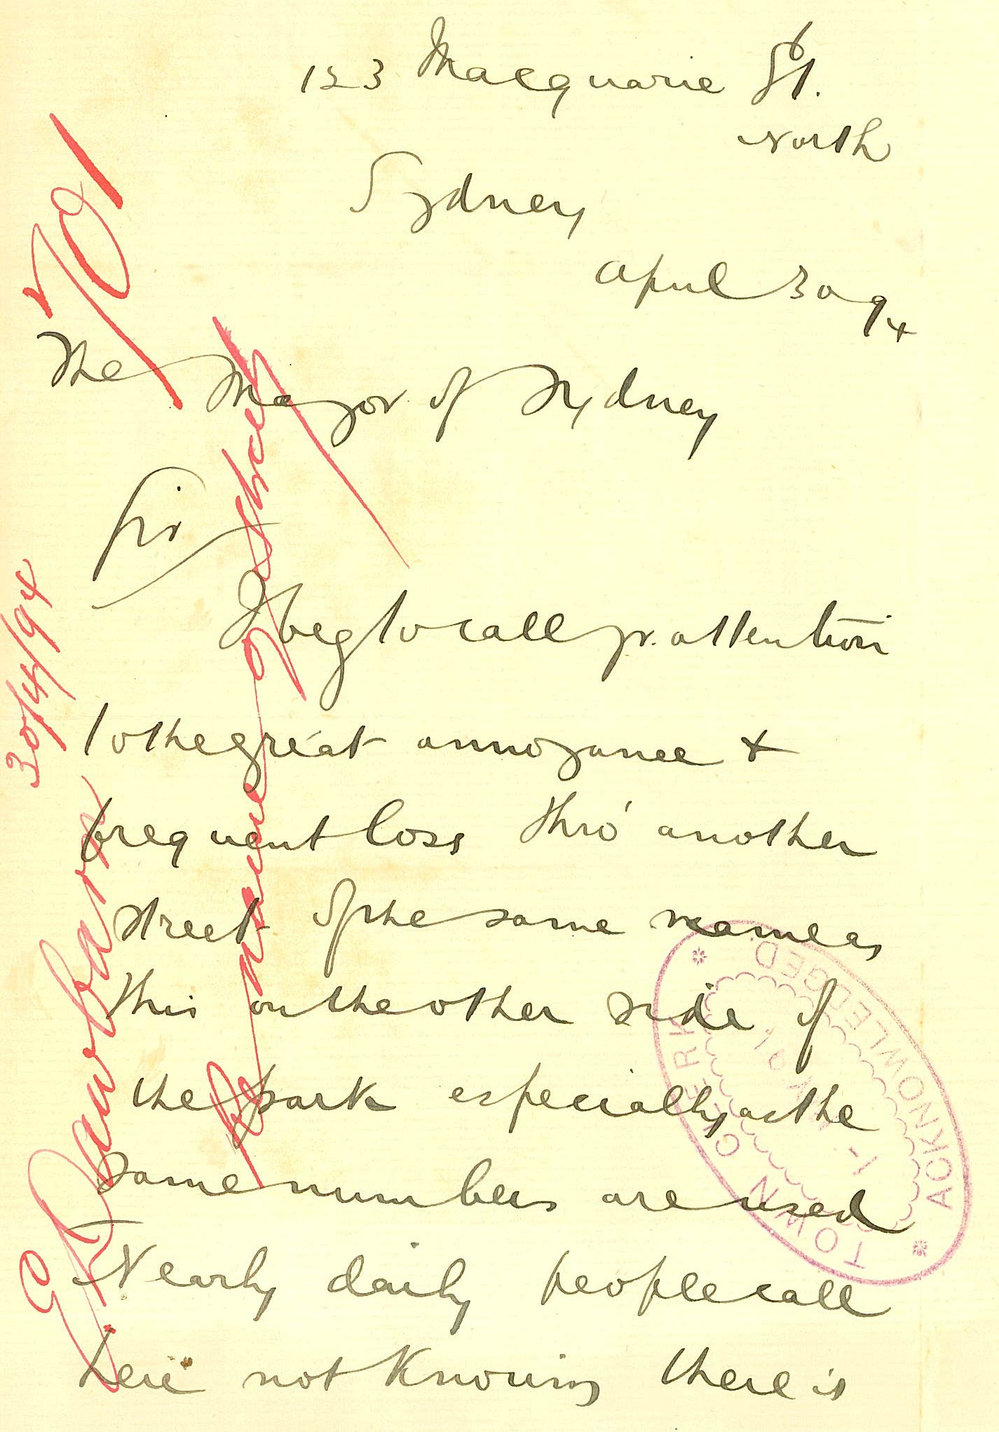 123 Macquarie St.
North
Sydney
April 30 94
The Mayor of Sydney
Sir
I beg to call yr. attention
to the great annoyance &
frequent loss thro' another
street of the same name as
this on the other side of
the park especially as the
same numbers are used
Nearly daily people call
here not knowing there is
701
30/4/94
E. Dawbarn
Re name of street
TOWN CLERK
ACKNOWLEDGED